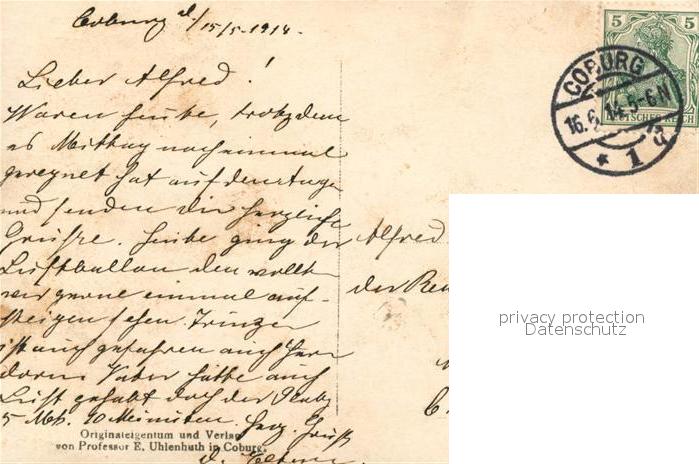 Coburg d. 15/5. 1914.
Lieber Alfred!
Waren heute, trotzdem
es Mittag noch einmal
geregnet hat auf den
und senden dir herzliche
Grüsse. Heute ging der
Luftballon den wollt
wir gerne einmal auf-
steigen sehen. Prinzen
ist auch gefahren auch Herr
dorn. Vater hätte auch
Lust gehabt doch der
5 Mk. 10 Minuten. Herz. Gruß
d. Eltern.
Alfred
der
Originaleigentum und Verlag
von Professor E. Uhlenhuth in Coburg.
5 5
DEUTSCHES REICH
COBURG
16.6.14.5-6N
* 1
privacy protection
Datenschutz